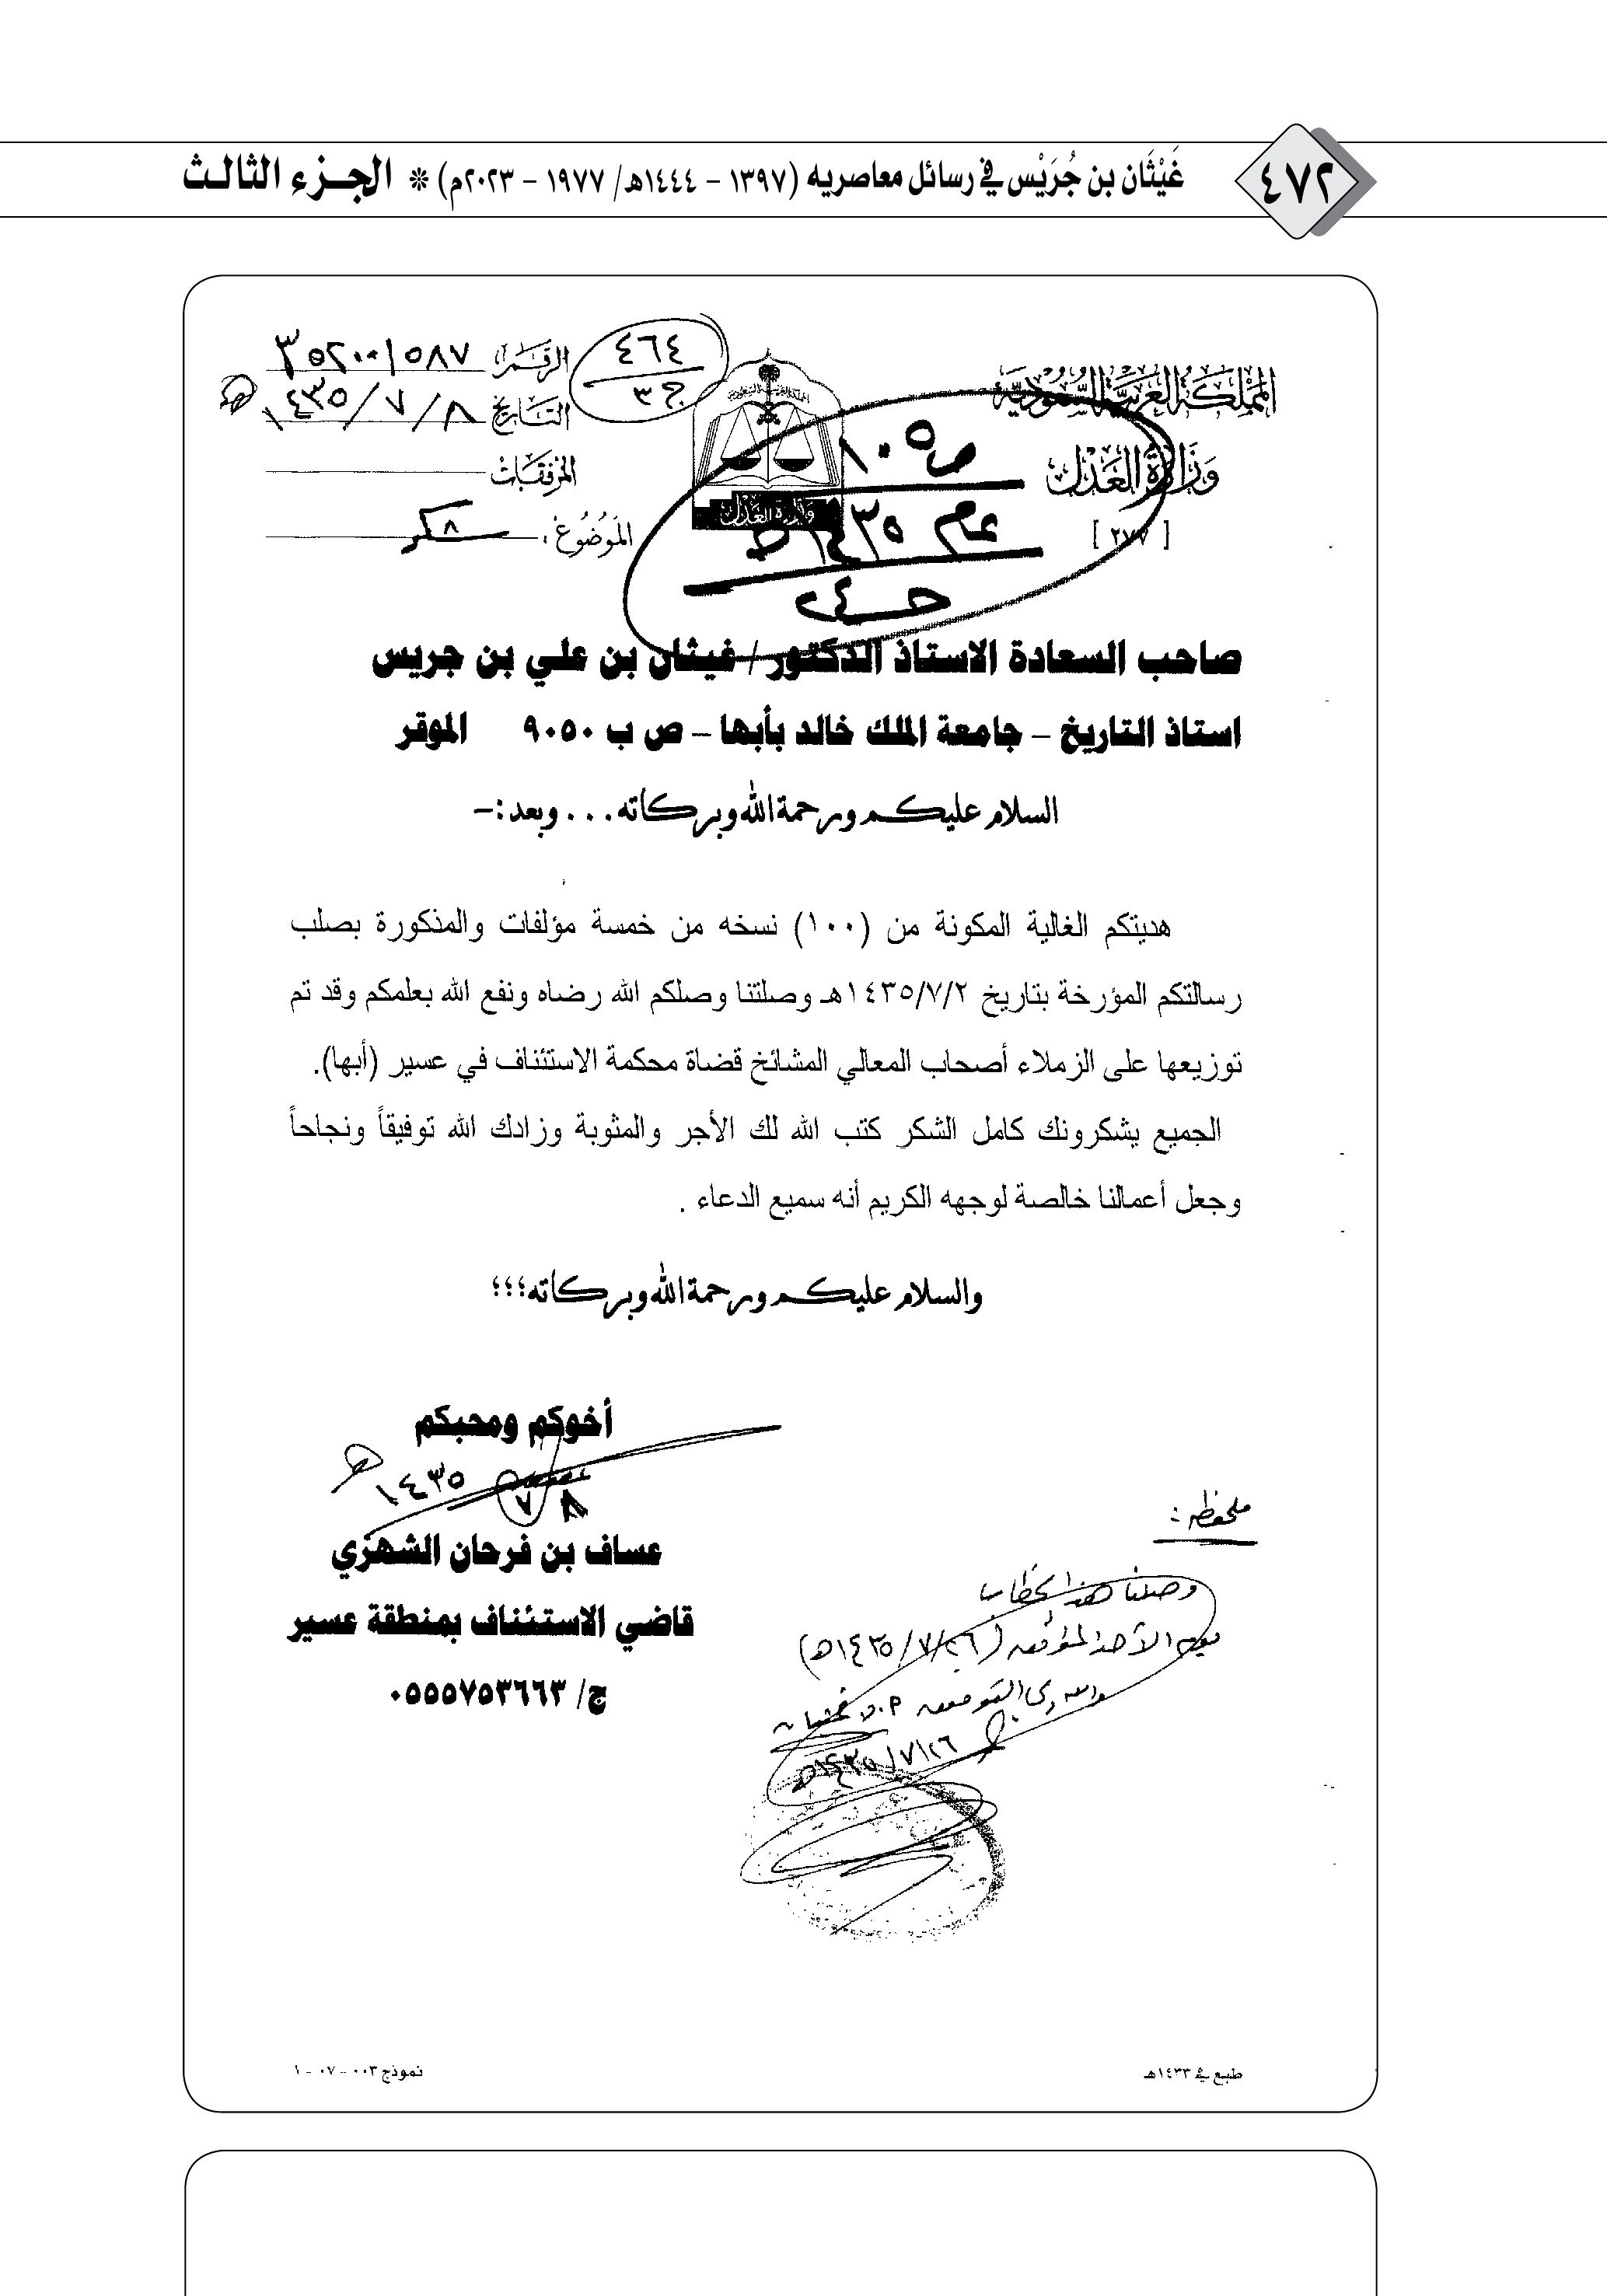 ٤٧٢
غَيْثَان بن جُرَيْس في رسائل معاصريه (١٣٩٧ - ١٤٤٤هـ/ ١٩٧٧ - ٢٠٢٣م) * الجزء الثالث
المملكة العربية السعودية
وزارة العدل
[ ٢٧٧ ]
وزارة العدل
ص ١٠٥
عام ١٤٣٥هـ
٤٦٤
ج ٣
الرقم ٣٥٢٠٠١٥٨٧
التاريخ ٨ / ٧ / ١٤٣٥هـ
المرفقات
الموضوع :
صاحب السعادة الاستاذ الدكتور / غيثان بن علي بن جريس
استاذ التاريخ – جامعة الملك خالد بأبها – ص ب ٩٠٥٠ الموقر
السلام عليكم ورحمة الله وبركاته . . . وبعد :-
هديتكم الغالية المكونة من (١٠٠) نسخه من خمسة مؤلفات والمذكورة بصلب
رسالتكم المؤرخة بتاريخ ١٤٣٥/٧/٢هـ وصلتنا وصلكم الله رضاه ونفع الله بعلمكم وقد تم
توزيعها على الزملاء أصحاب المعالي المشائخ قضاة محكمة الاستئناف في عسير (أبها).
الجميع يشكرونك كامل الشكر كتب الله لك الأجر والمثوبة وزادك الله توفيقاً ونجاحاً
وجعل أعمالنا خالصة لوجهه الكريم أنه سميع الدعاء .
والسلام عليكم ورحمة الله وبركاته؛؛؛
أخوكم ومحبكم
٨ ٧ ١٤٣٥هـ
عساف بن فرحان الشهري
قاضي الاستئناف بمنطقة عسير
ج/ ٠٥٥٥٧٥٣٦٦٣
ملحظه :
وصلنا هذا الخطاب
يوم الأحد الموافق (٢٦/٧/١٤٣٥هـ)
والله ولي التوفيق أ.د. غيثان
٢٦/٧/١٤٣٥هـ
طبع في ١٤٣٣هـ
نموذج ٠٠٣ - ٠٧ - ١